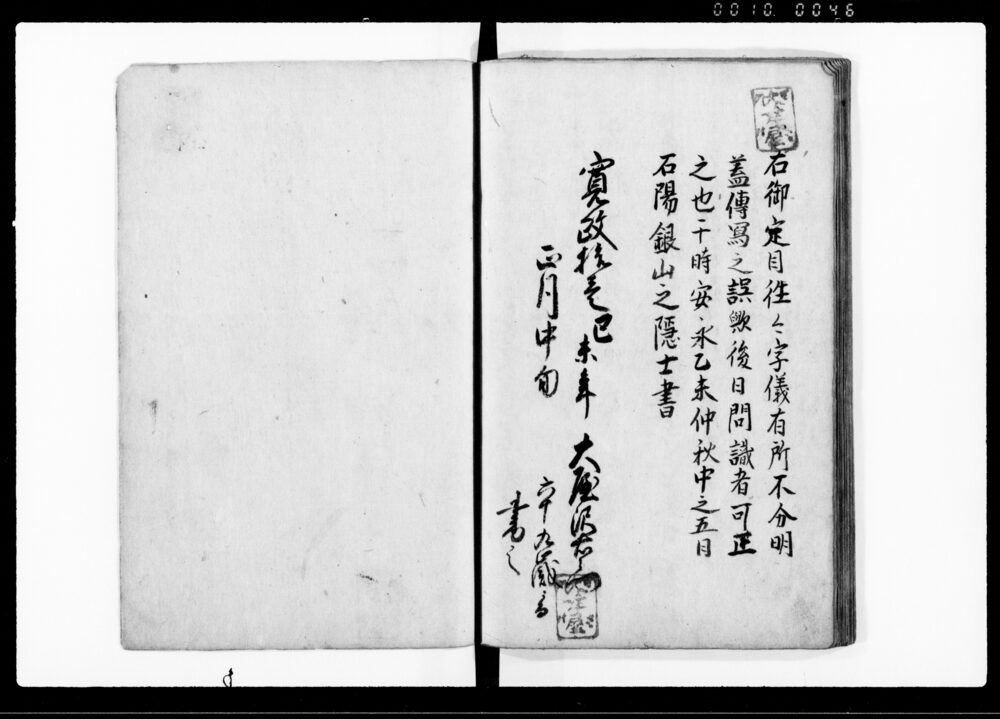 0010 0046
右御定目往々字儀有所不分明
蓋傳寫之誤歟後日問識者可正
之也于時安永乙未仲秋中之五日
石陽銀山之隠士書
寛政拾壱己未年
正月中旬
大屋沢右
六十九歳
書之